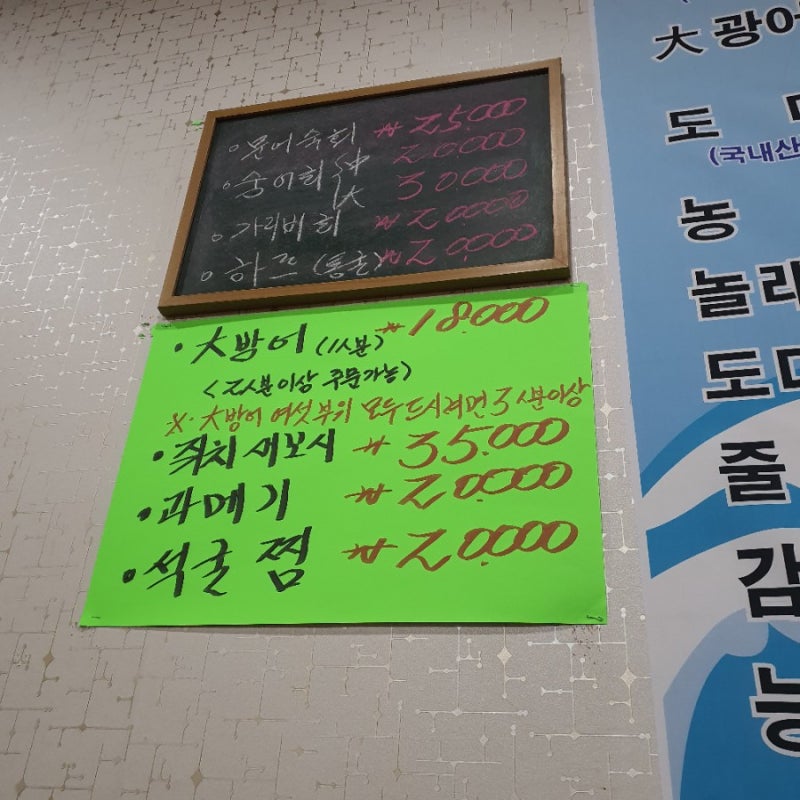 •문어숙회 ₩25.000
•숭어회 中 20.000
大 30.000
•가리비회 ₩20.000
•하프(통굴) ₩20.000
•大방어(1人분) ₩18.000
<2人분이상 주문가능>
※.大방어 여섯부위 모두드시려면 3人분이상
•쥐치세꼬시 ₩35.000
•과메기 ₩20.000
•석굴찜 ₩20.000
大광어
도
(국내산
농
놀래
도다
줄
감
능